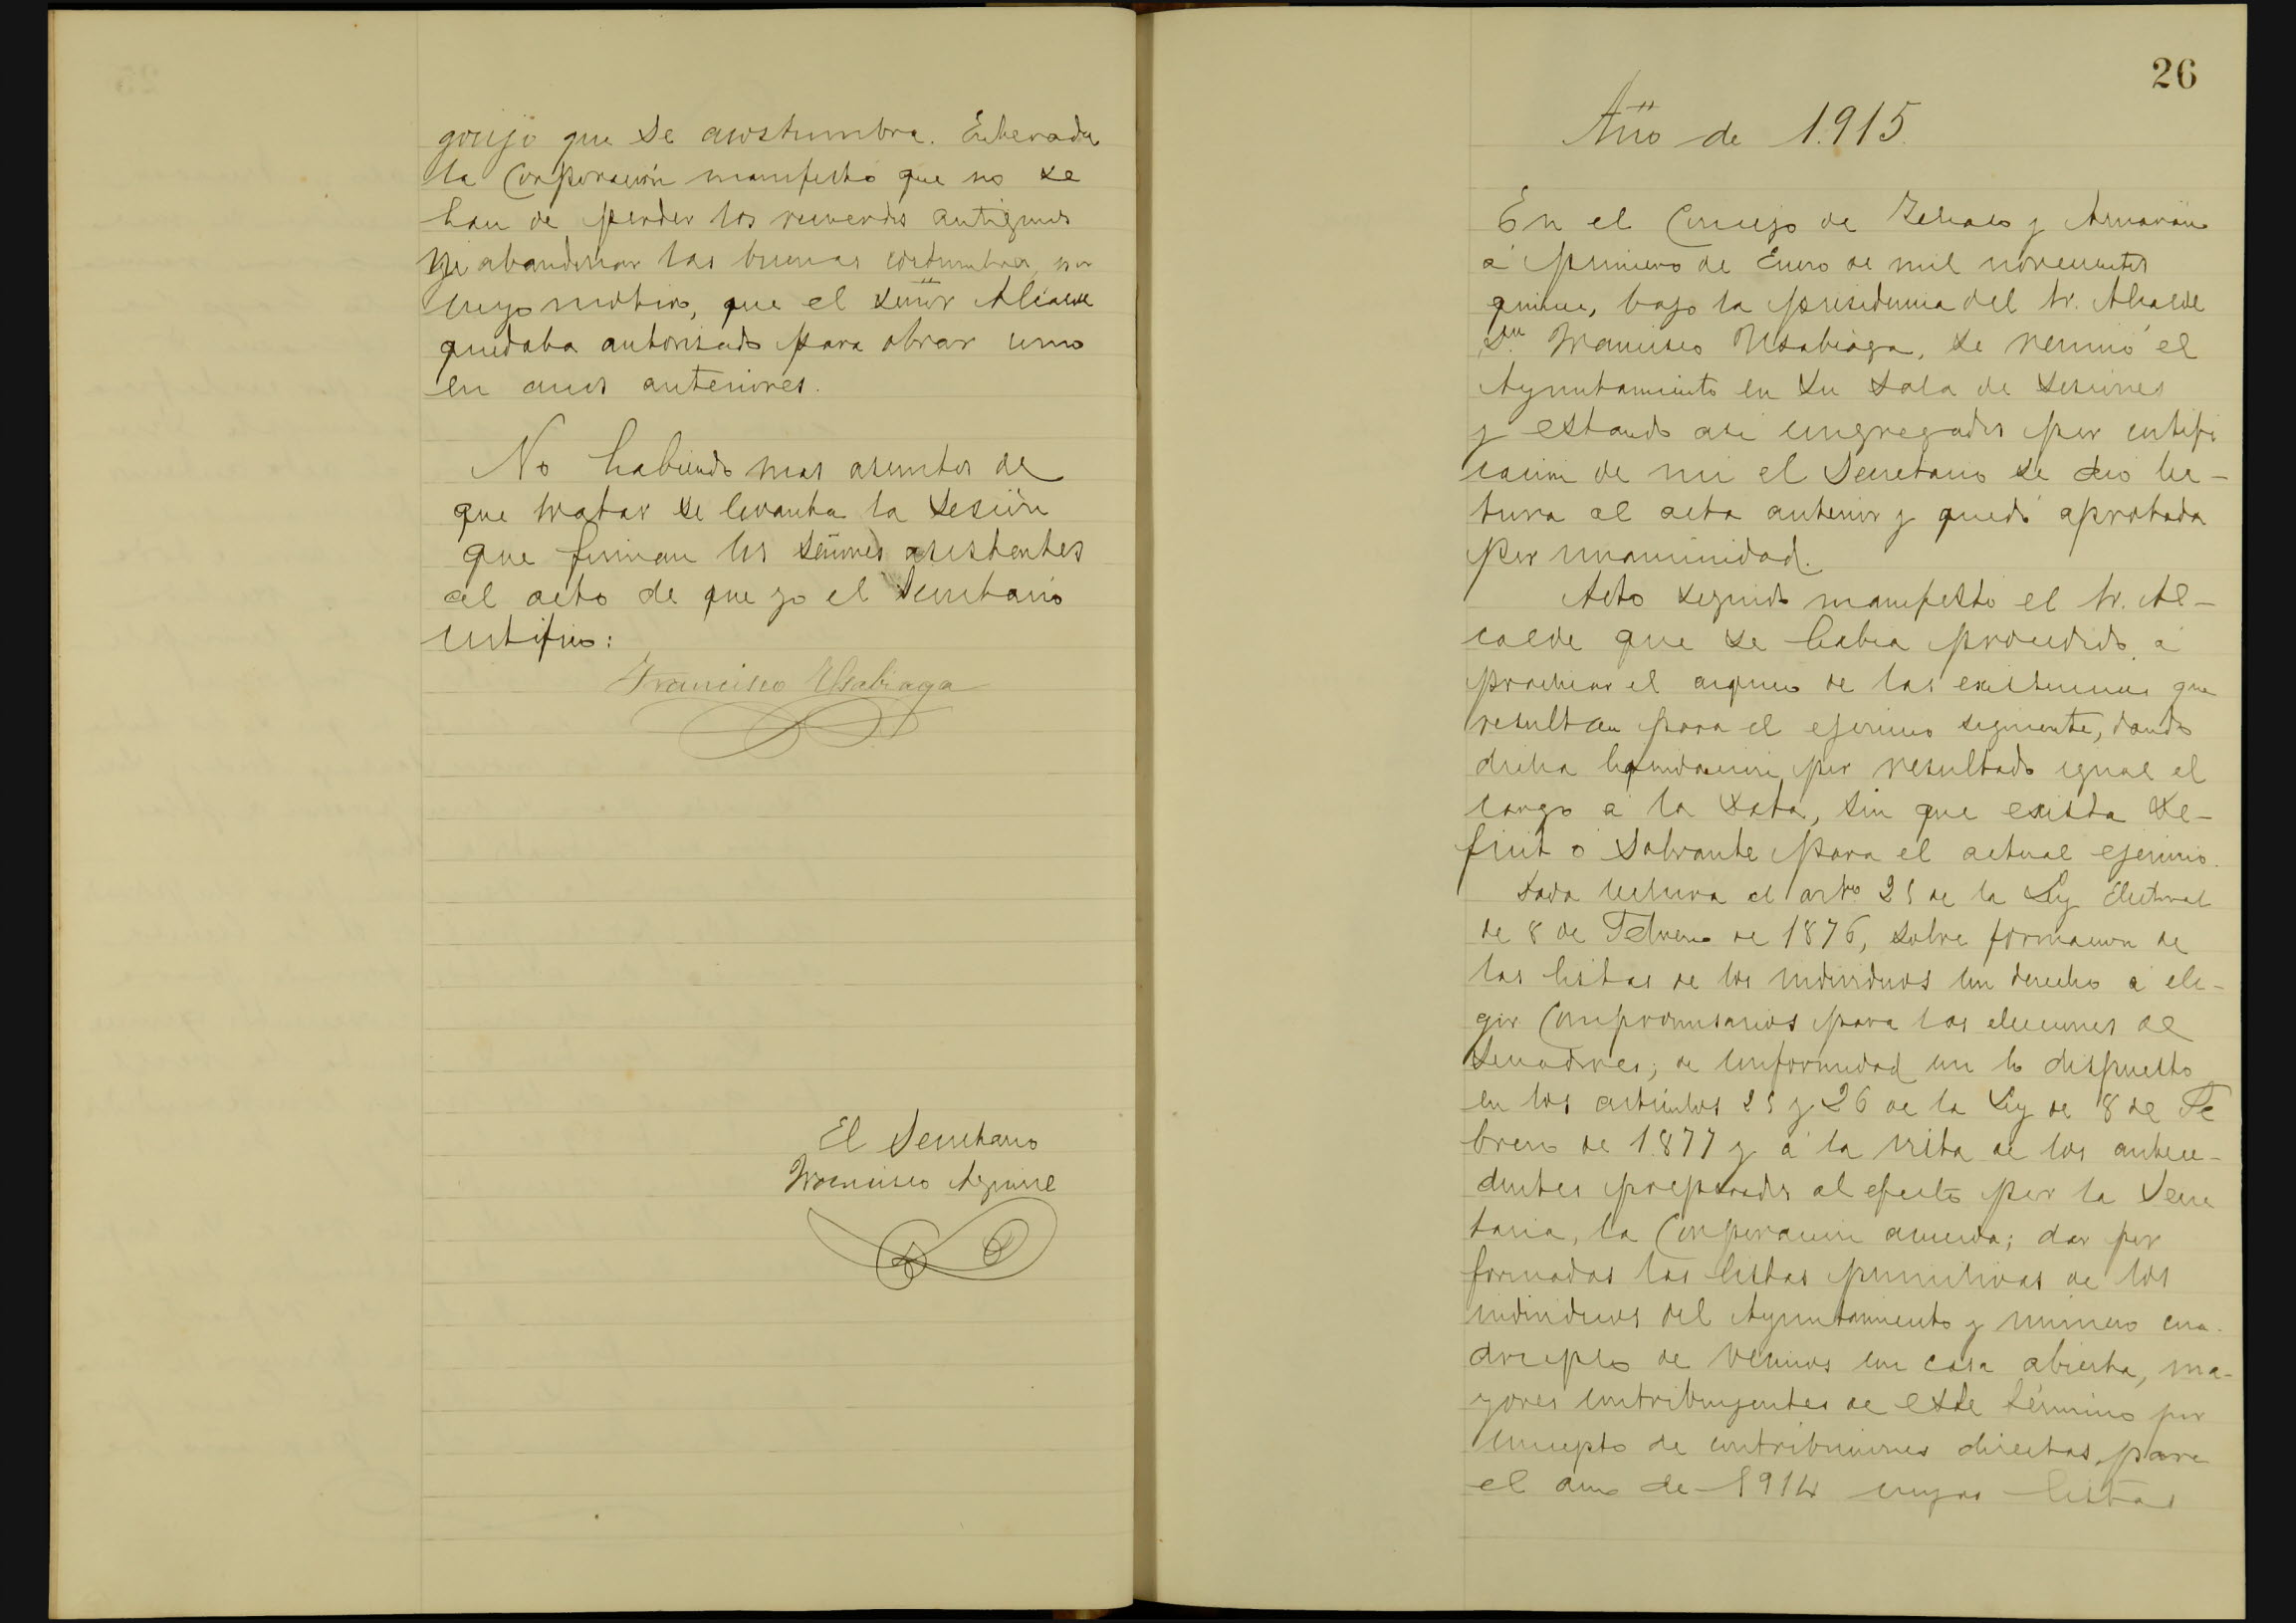 gocijo que se acostumbra. Enterada
la Corporación manifestó que no se
han de perder los recuerdos antiguos
ni abandonar las buenas costumbres, por
cuyo motivo, que el señor Alcalde
quedaba autorisado para obrar como
en años anteriores.
No habiendo mas asuntos de
que tratar se levanta la sesión
que firman los señores asistentes
al acto de que yo el Secretario
certifico:
Francisco Usabiaga
El Secretario
Francisco Aguirre
26
Año de 1.915.
En el Concejo de y
á primero de Enero de mil novecientos
quince, bajo la presidencia del Sr. Alcalde
Dn. Francisco Usabiaga, se reunió el
Ayuntamiento en su sala de sesiones
y estando asi congregados por certifi
cación de mi el Secretario se dió lec-
tura al acta anterior y quedó aprobada
por unanimidad.
Acto seguido manifestó el Sr. Al-
calde que se habia procedido á
practicar el arqueo de las existencias que
resultan para el ejercicio siguiente, dando
dicha liquidación por resultado igual el
cargo á la data, sin que exista de-
ficit ó sobrante para el actual ejercicio.
Dada lectura al artº 25 de la Ley Electoral
de 8 de Febrero de 1876, sobre formacion de
las listas de los individuos con derecho á ele-
gir Compromisarios para las elecciones de
Senadores; de conformidad con lo dispuesto
en los articulos 25 y 26 de la Ley de 8 de Fe
brero de 1.877 y á la vista de los antece-
dentes preparados al efecto por la Secre
taria, la Corporación acuerda; dar por
formadas las listas primitivas de los
individuos del Ayuntamiento y número cua-
druplo de vecinos con casa abierta, ma-
yores contribuyentes de este término por
concepto de contribuciones directas, para
el año de 1914 cuyas listas